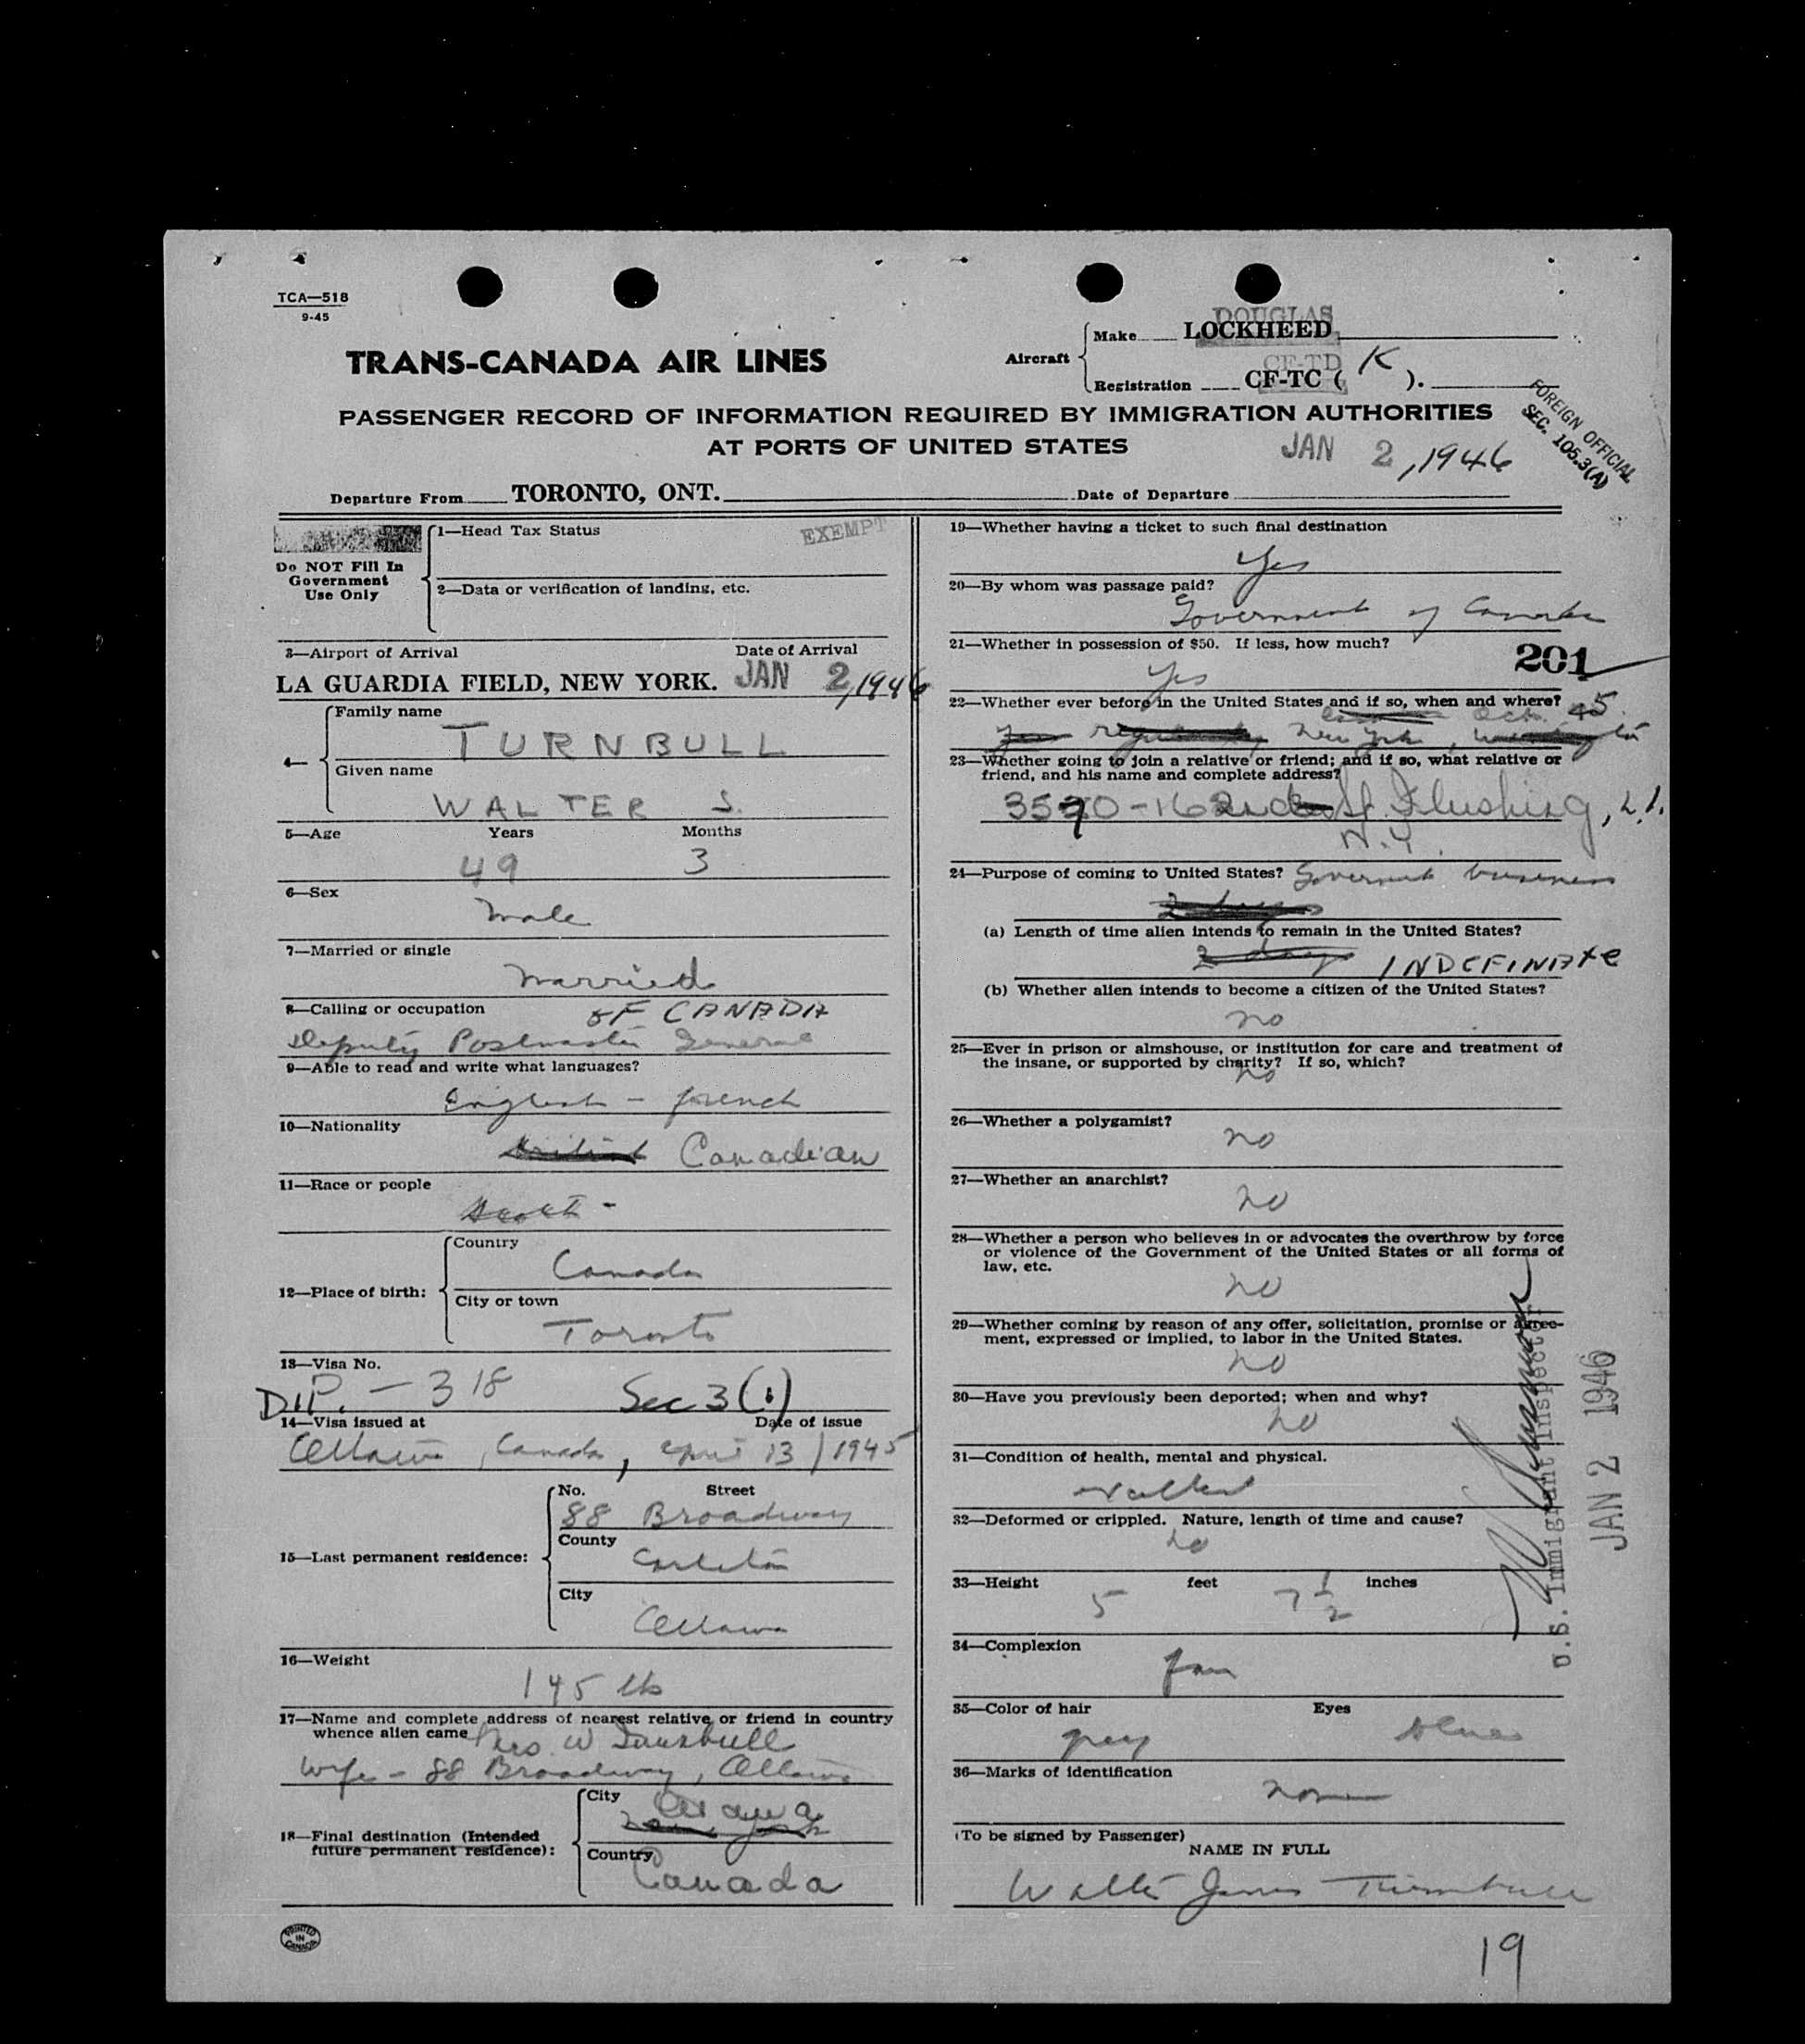 TCA—518
9-45
DOUGLAS
Make LOCKHEED
TRANS-CANADA AIR LINES
Aircraft
CF-TD
Registration CF-TC ( K ).
PASSENGER RECORD OF INFORMATION REQUIRED BY IMMIGRATION AUTHORITIES
AT PORTS OF UNITED STATES
FOREIGN OFFICIAL
SEC. 105.3(A)
JAN 2, 1946
Departure From TORONTO, ONT.
Date of Departure
Do NOT Fill In
Government
Use Only
1—Head Tax Status EXEMPT
2—Data or verification of landing, etc.
3—Airport of Arrival Date of Arrival
LA GUARDIA FIELD, NEW YORK. JAN 2, 1946
4—
Family name
TURNBULL
Given name
WALTER J.
5—Age Years Months
49 3
6—Sex
Male
7—Married or single
Married
8—Calling or occupation OF CANADA
Deputy Postmaster General
9—Able to read and write what languages?
English - french
10—Nationality
British Canadian
11—Race or people
Scotch -
12—Place of birth:
Country
Canada
City or town
Toronto
13—Visa No.
DIP. - 318 Sec 3(1)
14—Visa issued at Date of issue
Ottawa, Canada, April 13/1945
15—Last permanent residence:
No. Street
88 Broadway
County
Carleton
City
Ottawa
16—Weight
145 lbs
17—Name and complete address of nearest relative or friend in country
whence alien came Mrs. W Turnbull
Wife - 88 Broadway, Ottawa
18—Final destination (Intended
future permanent residence):
City Ottawa
New York
Country
Canada
PRINTED
IN
CANADA
19—Whether having a ticket to such final destination
Yes
20—By whom was passage paid?
Government of Canada
21—Whether in possession of $50. If less, how much?
Yes
201
22—Whether ever before in the United States and if so, when and where?
Oct. 45
Yes regularly New York, Washington
23—Whether going to join a relative or friend; and if so, what relative or
friend, and his name and complete address?
St. Flushing, L.I.
N.Y.
24—Purpose of coming to United States? Government business
2 days
(a) Length of time alien intends to remain in the United States?
2 days INDEFINATE
(b) Whether alien intends to become a citizen of the United States?
no
25—Ever in prison or almshouse, or institution for care and treatment of
the insane, or supported by charity? If so, which?
no
26—Whether a polygamist?
no
27—Whether an anarchist?
no
28—Whether a person who believes in or advocates the overthrow by force
or violence of the Government of the United States or all forms of
law, etc.
no
29—Whether coming by reason of any offer, solicitation, promise or agree-
ment, expressed or implied, to labor in the United States.
no
30—Have you previously been deported; when and why?
no
31—Condition of health, mental and physical.
32—Deformed or crippled. Nature, length of time and cause?
no
33—Height feet inches
5 7 1/2
34—Complexion
fair
35—Color of hair Eyes
grey blue
36—Marks of identification
none
(To be signed by Passenger)
NAME IN FULL
Walter James Turnbull
U.S. Immigrant Inspector
JAN 2 1946
19